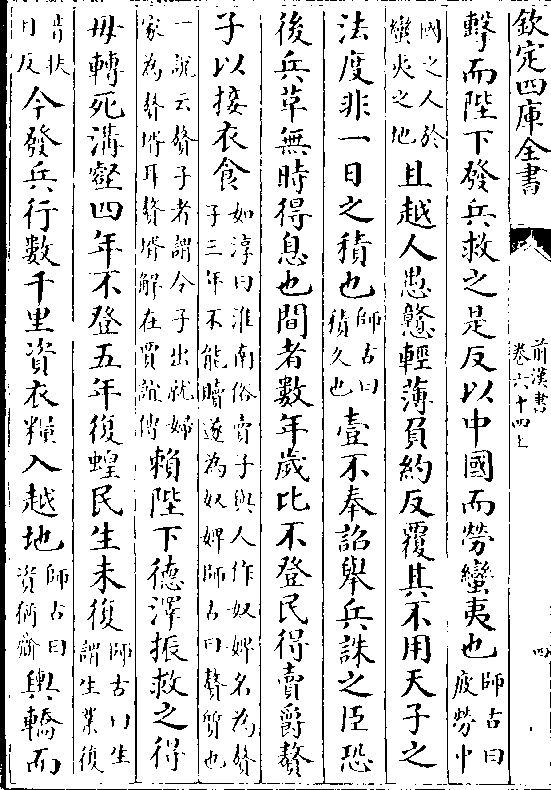 欽定四庫全書
前漢書
卷六十四上
四
擊而陛下發兵救之是反以中國而勞蠻夷也師古曰疲勞中
國之人於蠻夷之地且越人愚戇輕薄負約反覆其不用天子之
法度非一日之積也師古曰積久也壹不奉詔舉兵誅之臣恐
後兵革無時得息也間者數年歲比不登民得賣爵贅
子以接衣食如淳曰淮南俗賣子與人作奴婢名為贅子三年不能贖遂為奴婢師古曰贅質也
一説云贅子者謂令子出就婦家為贅壻耳贅壻解在賈誼傳賴陛下德澤振救之得
毋轉死溝壑四年不登五年復蝗民生未復師古曰生謂生業復
音扶目反今發兵行數千里資衣糧入越地師古曰資猶齎輿轎而